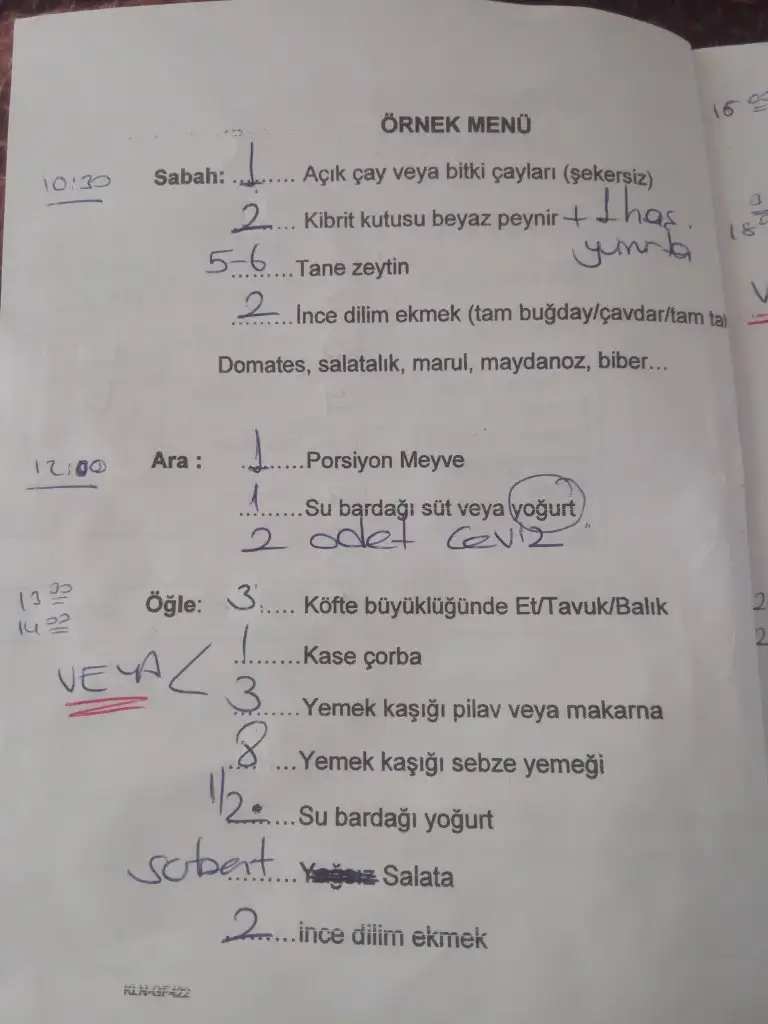 ÖRNEK MENÜ
10:30 Sabah: 1 Açık çay veya bitki çayları (şekersiz)
2 Kibrit kutusu beyaz peynir + 1 haş. yumurta
5-6 Tane zeytin
2 İnce dilim ekmek (tam buğday/çavdar/tam ta
Domates, salatalık, marul, maydanoz, biber...
12:00 Ara : 1 Porsiyon Meyve
1 Su bardağı süt veya yoğurt
2 adet ceviz
13 00 14 00 Öğle: 3 Köfte büyüklüğünde Et/Tavuk/Balık
VEYA < 1 Kase çorba
3 Yemek kaşığı pilav veya makarna
8 Yemek kaşığı sebze yemeği
1/2 Su bardağı yoğurt
serbest Yağsız Salata
2 ince dilim ekmek
KLN-GF422
16 00
18
2
2